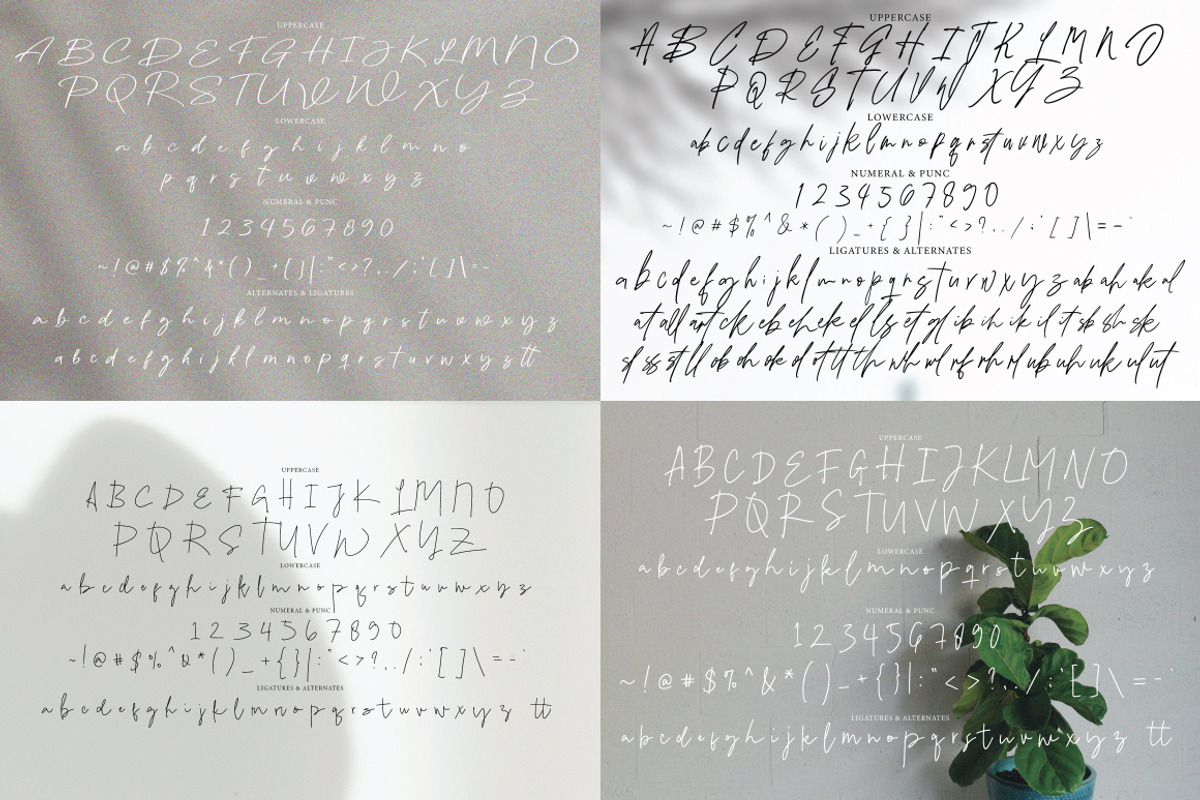 UPPERCASE
A B C D E F G H I J K L M N O
P Q R S T U V W X Y Z
LOWERCASE
a b c d e f g h i j k l m n o
p q r s t u v w x y z
NUMERAL & PUNC
1 2 3 4 5 6 7 8 9 0
~ ! @ # $ % ^ & * ( ) _ + { } | : " < > ? , . / ; ' [ ] \ = - `
ALTERNATES & LIGATURES
a b c d e f g h i j k l m n o p q r s t u v w x y z
a b c d e f g h i j k l m n o p q r s t u v w x y z tt
UPPERCASE
A B C D E F G H I J K L M N O
P Q R S T U V W X Y Z
LOWERCASE
a b c d e f g h i j k l m n o p q r s t u v w x y z
NUMERAL & PUNC
1 2 3 4 5 6 7 8 9 0
~ ! @ # $ % ^ & * ( ) _ + { } | : " < > ? , . / ; ' [ ] \ = - `
LIGATURES & ALTERNATES
a b c d e f g h i j k l m n o p q r s t u v w x y z ab ah ak al
at all art ck eb eh ek el ls et gl ib ih ik il it sb sh sk
sl ss st ll ob oh ok ol ot tt th wh wl rf rh rl ub uh uk ul ut
UPPERCASE
A B C D E F G H I J K L M N O
P Q R S T U V W X Y Z
LOWERCASE
a b c d e f g h i j k l m n o p q r s t u v w x y z
NUMERAL & PUNC
1 2 3 4 5 6 7 8 9 0
~ ! @ # $ % ^ & * ( ) _ + { } | : " < > ? , . / ; ' [ ] \ = - `
LIGATURES & ALTERNATES
a b c d e f g h i j k l m n o p q r s t u v w x y z tt
UPPERCASE
A B C D E F G H I J K L M N O
P Q R S T U V W X Y Z
LOWERCASE
a b c d e f g h i j k l m n o p q r s t u v w x y z
NUMERAL & PUNC
1 2 3 4 5 6 7 8 9 0
~ ! @ # $ % ^ & * ( ) _ + { } | : " < > ? , . / ; ' [ ] \ = - `
LIGATURES & ALTERNATES
a b c d e f g h i j k l m n o p q r s t u v w x y z tt